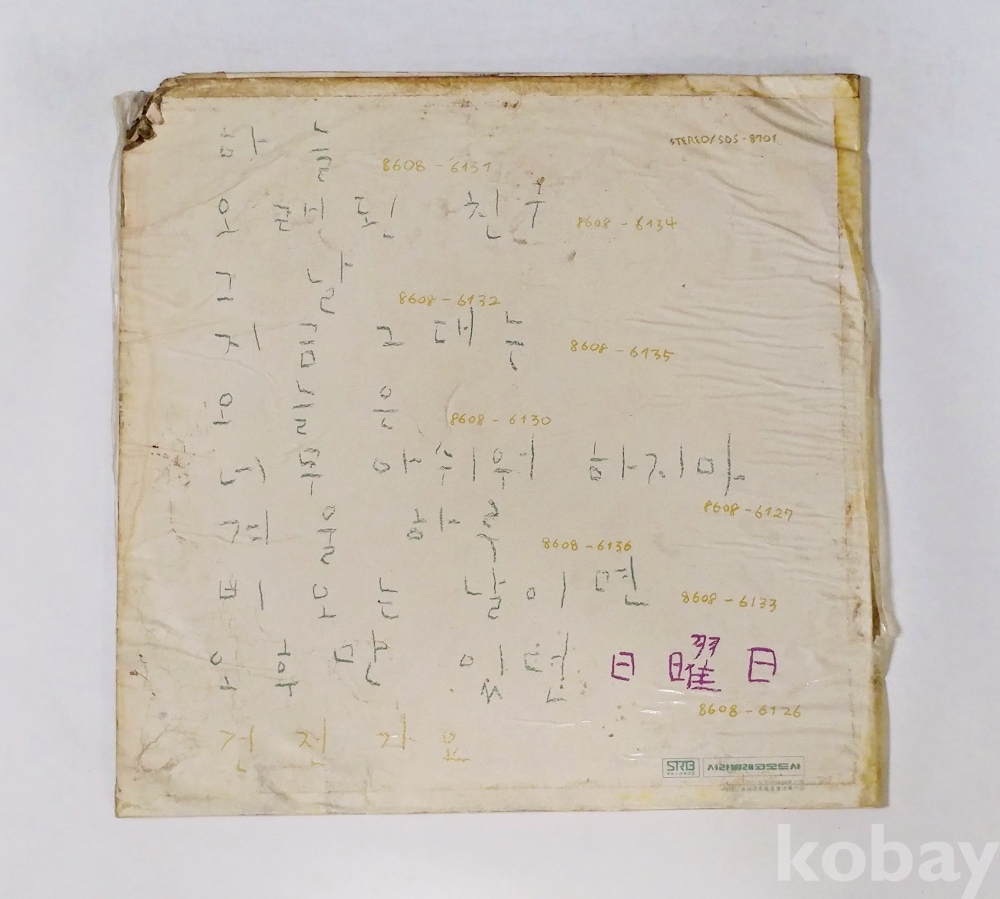 STEREO/SDS-8701
하늘 8608-6131
오래된 친구 8608-6134
그날 8608-6132
지금 그대는 8608-6135
오랄은 8608-6130
너무 아쉬워 하지마. 8608-6127
겨울 하루 8608-6136
비오는 날이면 8608-6133
오후만 있던 日曜日 8608-6126
건전가요
SRB 서라벌레코오드사
kobay